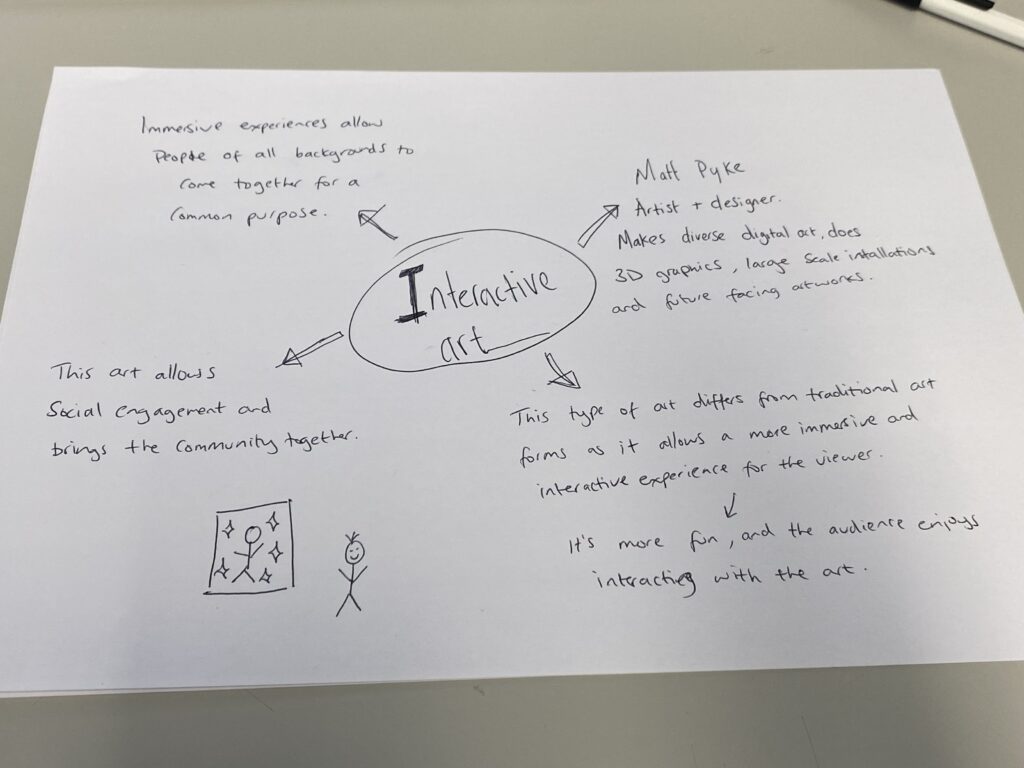 Immersive experiences allow
People of all backgrounds to
come together for a
common purpose.
Matt Pyke
Artist + designer.
Makes diverse digital art, does
3D graphics, large scale intallations
and future facing artworks.
Interactive
art
This art allows
Social engagement and
brings the community together.
This type of art differs from traditional art
forms as it allows a more immersive and
interactive experience for the viewer.
It's more fun, and the audience enjoys
interacting with the art.